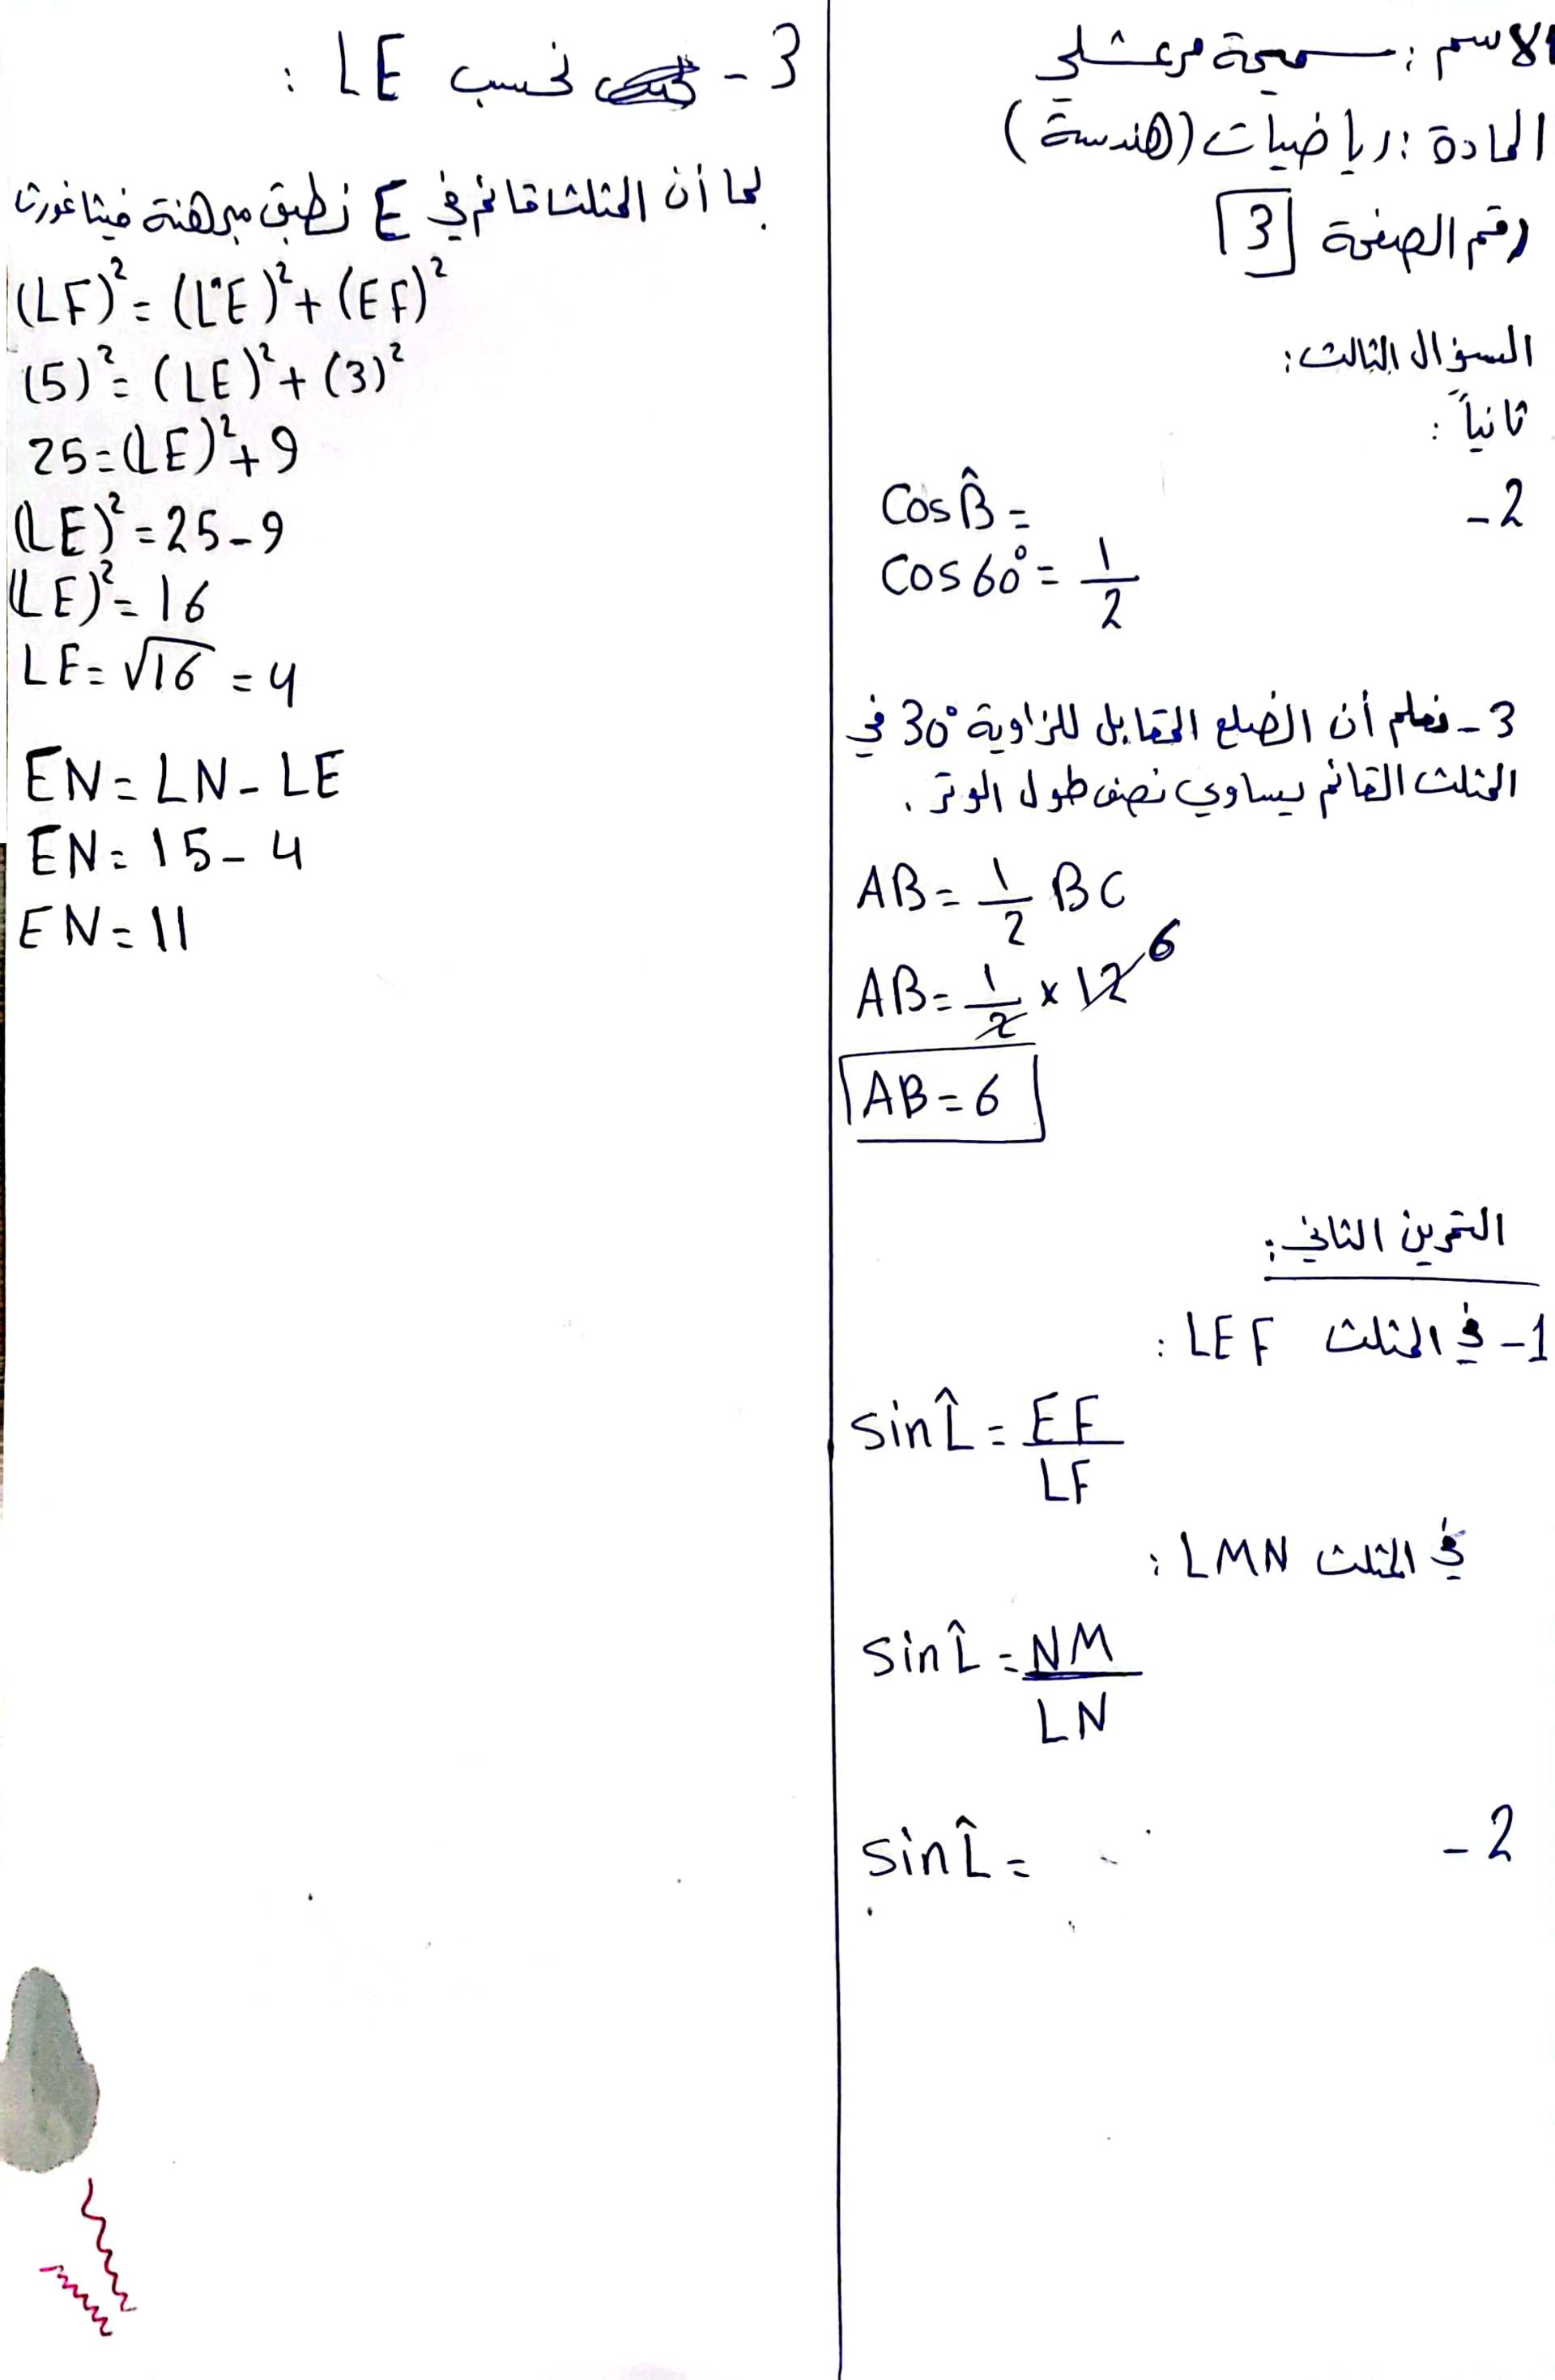 الاسم : سميحة مرعشلي
المادة : رياضيات (هندسة)
رقم الصفحة 3
السؤال الثالث :
ثانياً :
2 -
Cos B̂ =
Cos 60° = 1/2
3 - نعلم أن الضلع المقابل للزاوية 30° في
المثلث القائم يساوي نصف طول الوتر .
AB = 1/2 BC
AB = 1/2 × 12 6
AB = 6
التمرين الثاني :
1 - في المثلث LEF :
sin L̂ = EF/LF
في المثلث LMN :
sin L̂ = NM/LN
2 -
sin L̂ =
3 - نحسب LE :
بما أن المثلث قائم في E نطبق مبرهنة فيثاغورث
(LF)² = (LE)² + (EF)²
(5)² = (LE)² + (3)²
25 = (LE)² + 9
(LE)² = 25 - 9
(LE)² = 16
LE = √16 = 4
EN = LN - LE
EN = 15 - 4
EN = 11